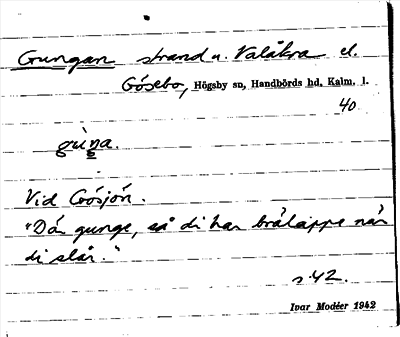 Gungan strand u. Valåkra el.
Gösebo, Högsby sn, Handbörds hd. Kalm. l.
40
gùṇa.
Vid Gösjön.
"Dä gunge, så di har brålappe når
di slår."
s. 42.
Ivar Modéer 1942